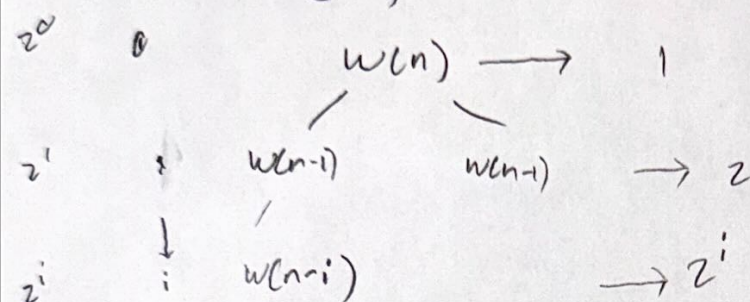 2⁰ 0 W(n) → 1
2¹ W(n-1) W(n-1) → 2
2ⁱ i W(n-i) → 2ⁱ